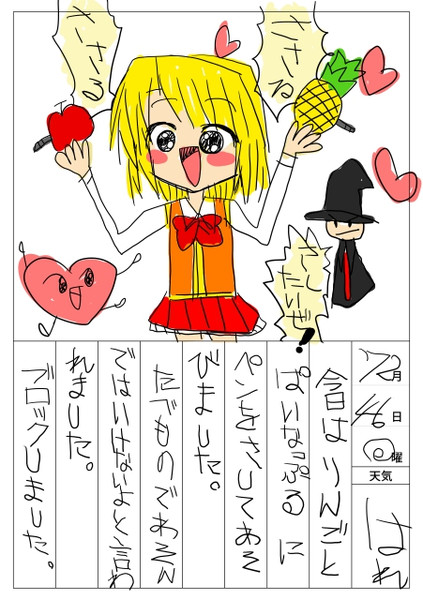 72月
46日
曜
天気
はれ
今日はりんごと
ぱいなっぷるに
ペンをさしてあそ
びました。
たべものであそん
ではいけないよと言わ
れました。
ブロックしました。